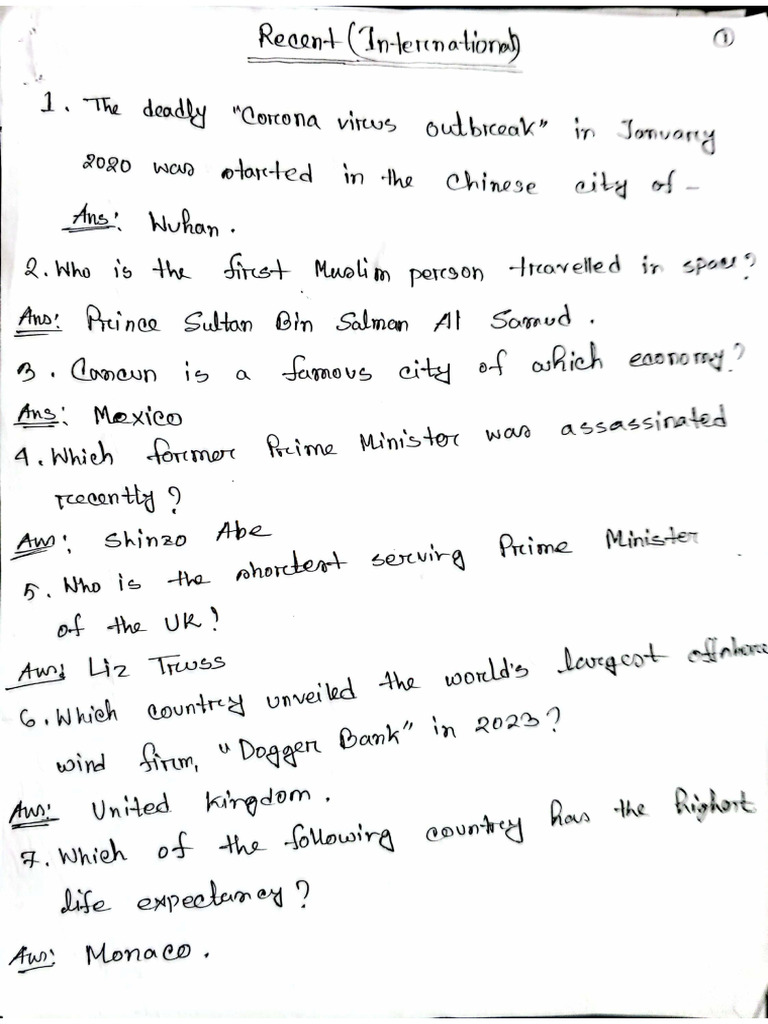 Recent (International)
1
1. The deadly "Corona virus outbreak" in January
2020 was started in the Chinese city of -
Ans: Wuhan.
2. Who is the first Muslim person travelled in space?
Ans: Prince Sultan Bin Salman Al Samud.
3. Cancun is a famous city of which economy?
Ans: Mexico
4. Which former Prime Minister was assassinated
recently?
Ans: Shinzo Abe
5. Who is the shortest serving Prime Minister
of the UK?
Ans: Liz Truss
6. Which country unveiled the world's largest offshore
wind firm, "Dogger Bank" in 2023?
Ans: United Kingdom.
7. Which of the following country has the highest
life expectancy?
Ans: Monaco.